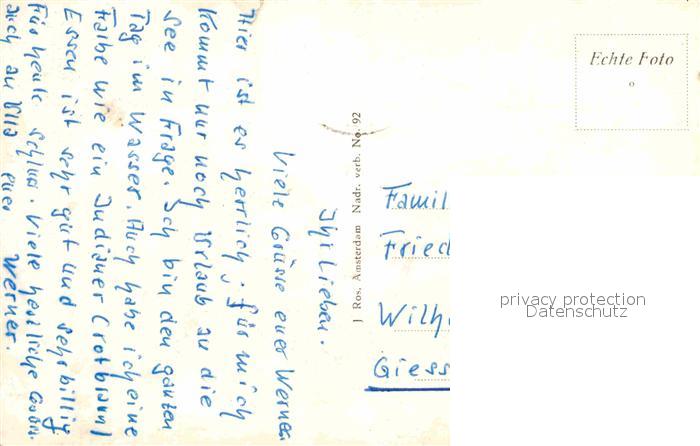 Ihr Lieben.
Viele Grüsse euer Werner.
Hier ist es herrlich, für mich
kommt nur noch Urlaub an die
See in Frage. Ich bin den ganzen
Tag im Wasser. Auch habe ich eine
Farbe wie ein Indianer (rotbraun)
Essen ist sehr gut und sehr billig
Für heute schluss. Viele herzliche
auch an euer Werner.
J Ros, Amsterdam Nadr. verb. No. 92
Echte Foto
Famil
Fried
Wilh
Giess
privacy protection
Datenschutz